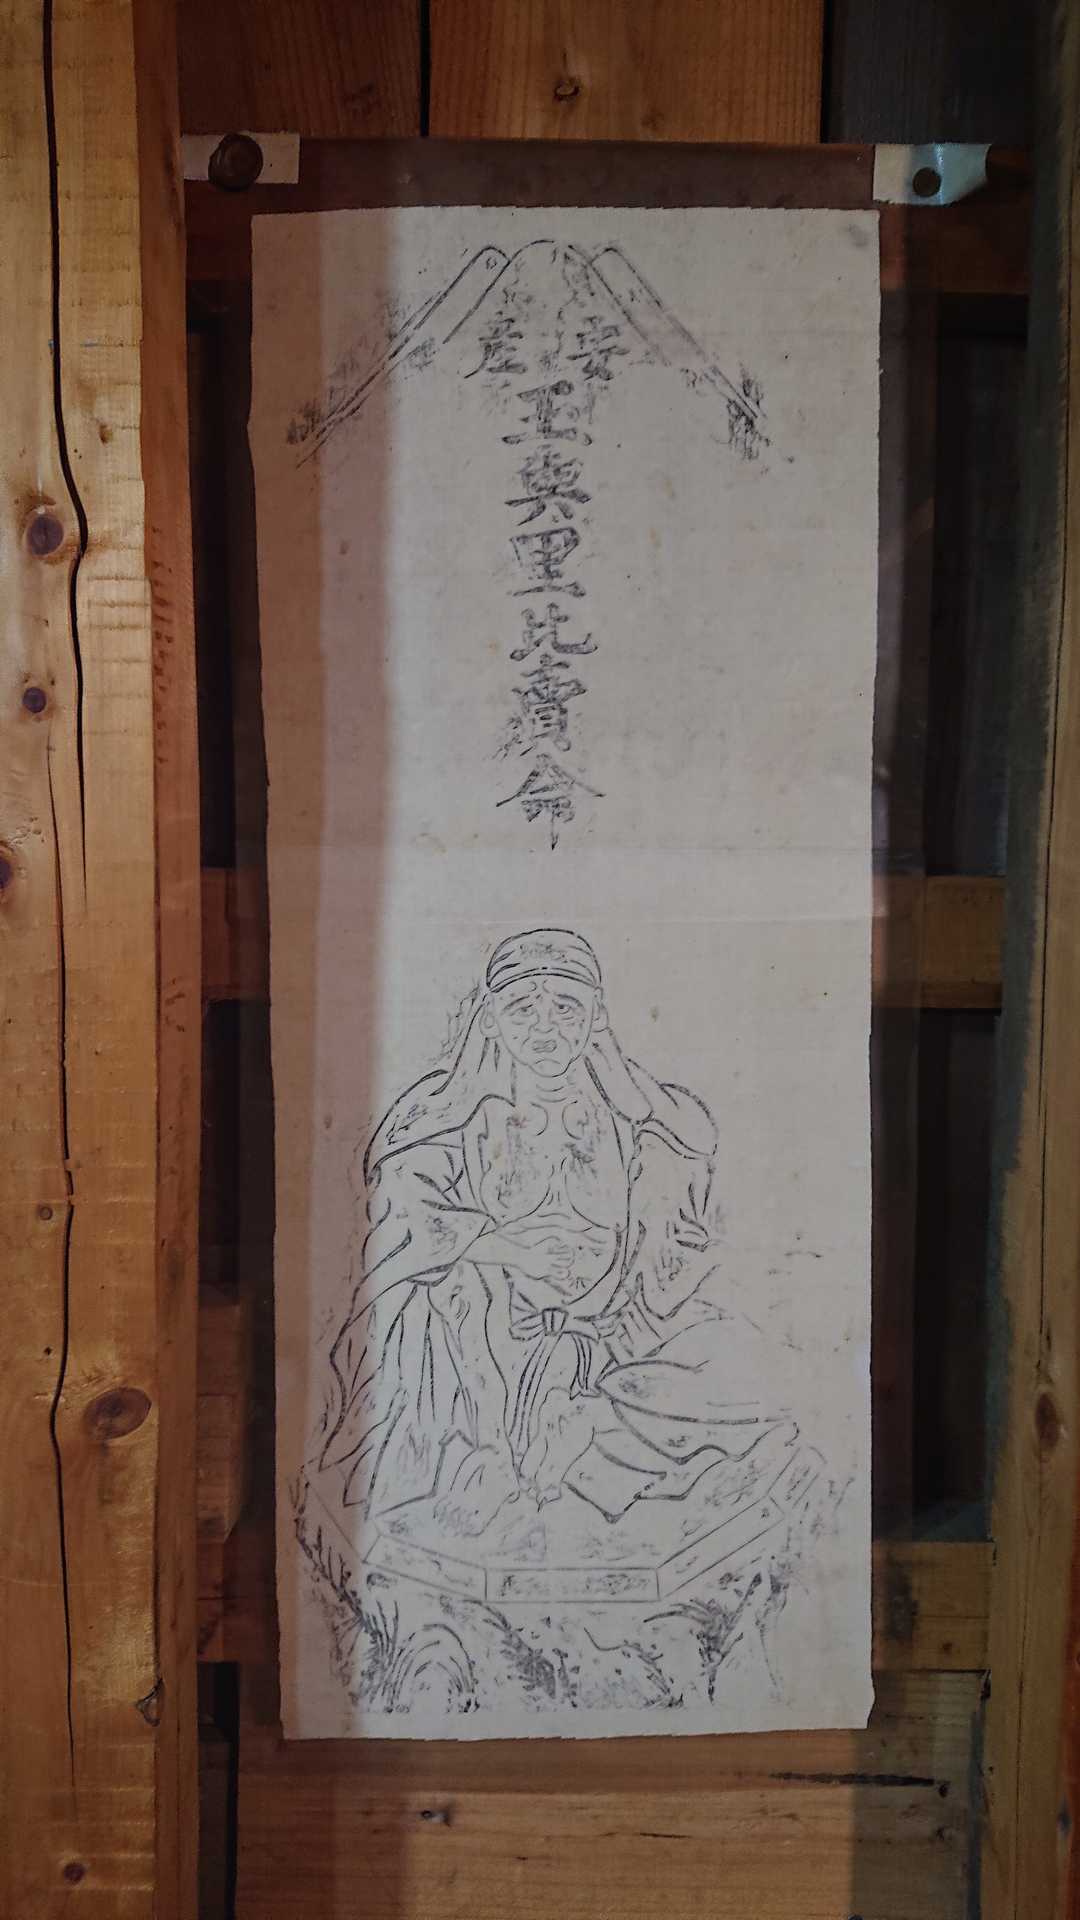 安産
玉與里比賣命